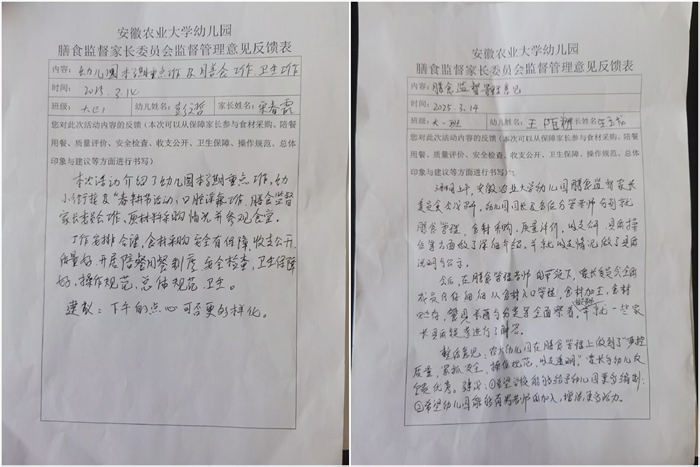 安徽农业大学幼儿园
膳食监督家长委员会监督管理意见反馈表
内容：幼儿园本学期重点工作及膳食工作、卫生工作
时间：2025.3.14
班级：大二 幼儿姓名： 家长姓名：
您对此次活动内容的反馈（本次可以从保障家长参与食材采购、陪餐
用餐、质量评价、安全检查、收支公开、卫生保障、操作规范、总体
印象与建议等方面进行书写）
本次活动介绍了幼儿园本学期重点工作，幼
小衔接及"春耕节活动、口腔涂氟工作、膳食监督
家长委员会工作、原材料采购情况并参观食堂。
工作安排合理，食材采购安全有保障，收支公开，
质量好，开展陪餐用餐制度，安全检查，卫生保障
好，操作规范，总体规范卫生。
建议：下午的点心可否更多样化。
安徽农业大学幼儿园
膳食监督家长委员会监督管理意见反馈表
内容：膳食监督管理意见
时间：2025.3.14
班级：大一班 幼儿姓名：王 家长姓名：
您对此次活动内容的反馈（本次可以从保障家长参与食材采购、陪餐
用餐、质量评价、安全检查、收支公开、卫生保障、操作规范、总体
印象与建议等方面进行书写）
安徽农业大学幼儿园膳食监督家长
委员会会议召开，幼儿园园长及主任与管老师分别就
膳食管理、食材采购、质量评价、收支公开、
等方面做了详细介绍，并就收支情况做了
说明与公示。
会后，在膳食管理老师的带领下，家长委员会全面
成员仔仔细细从食材入口管理、食材加工、食材
贮存、餐具等全面察看，并就一些家
长进行了解答。
整体意见：农大幼儿园在膳食管理上做到了"严控
质量，紧抓安全，操作规范，收支透明。"家长与幼儿反
优秀。建议：①希望学校能够给予幼儿园更多编制；
②希望幼儿园能够有男老师的加入，增添更多活力。